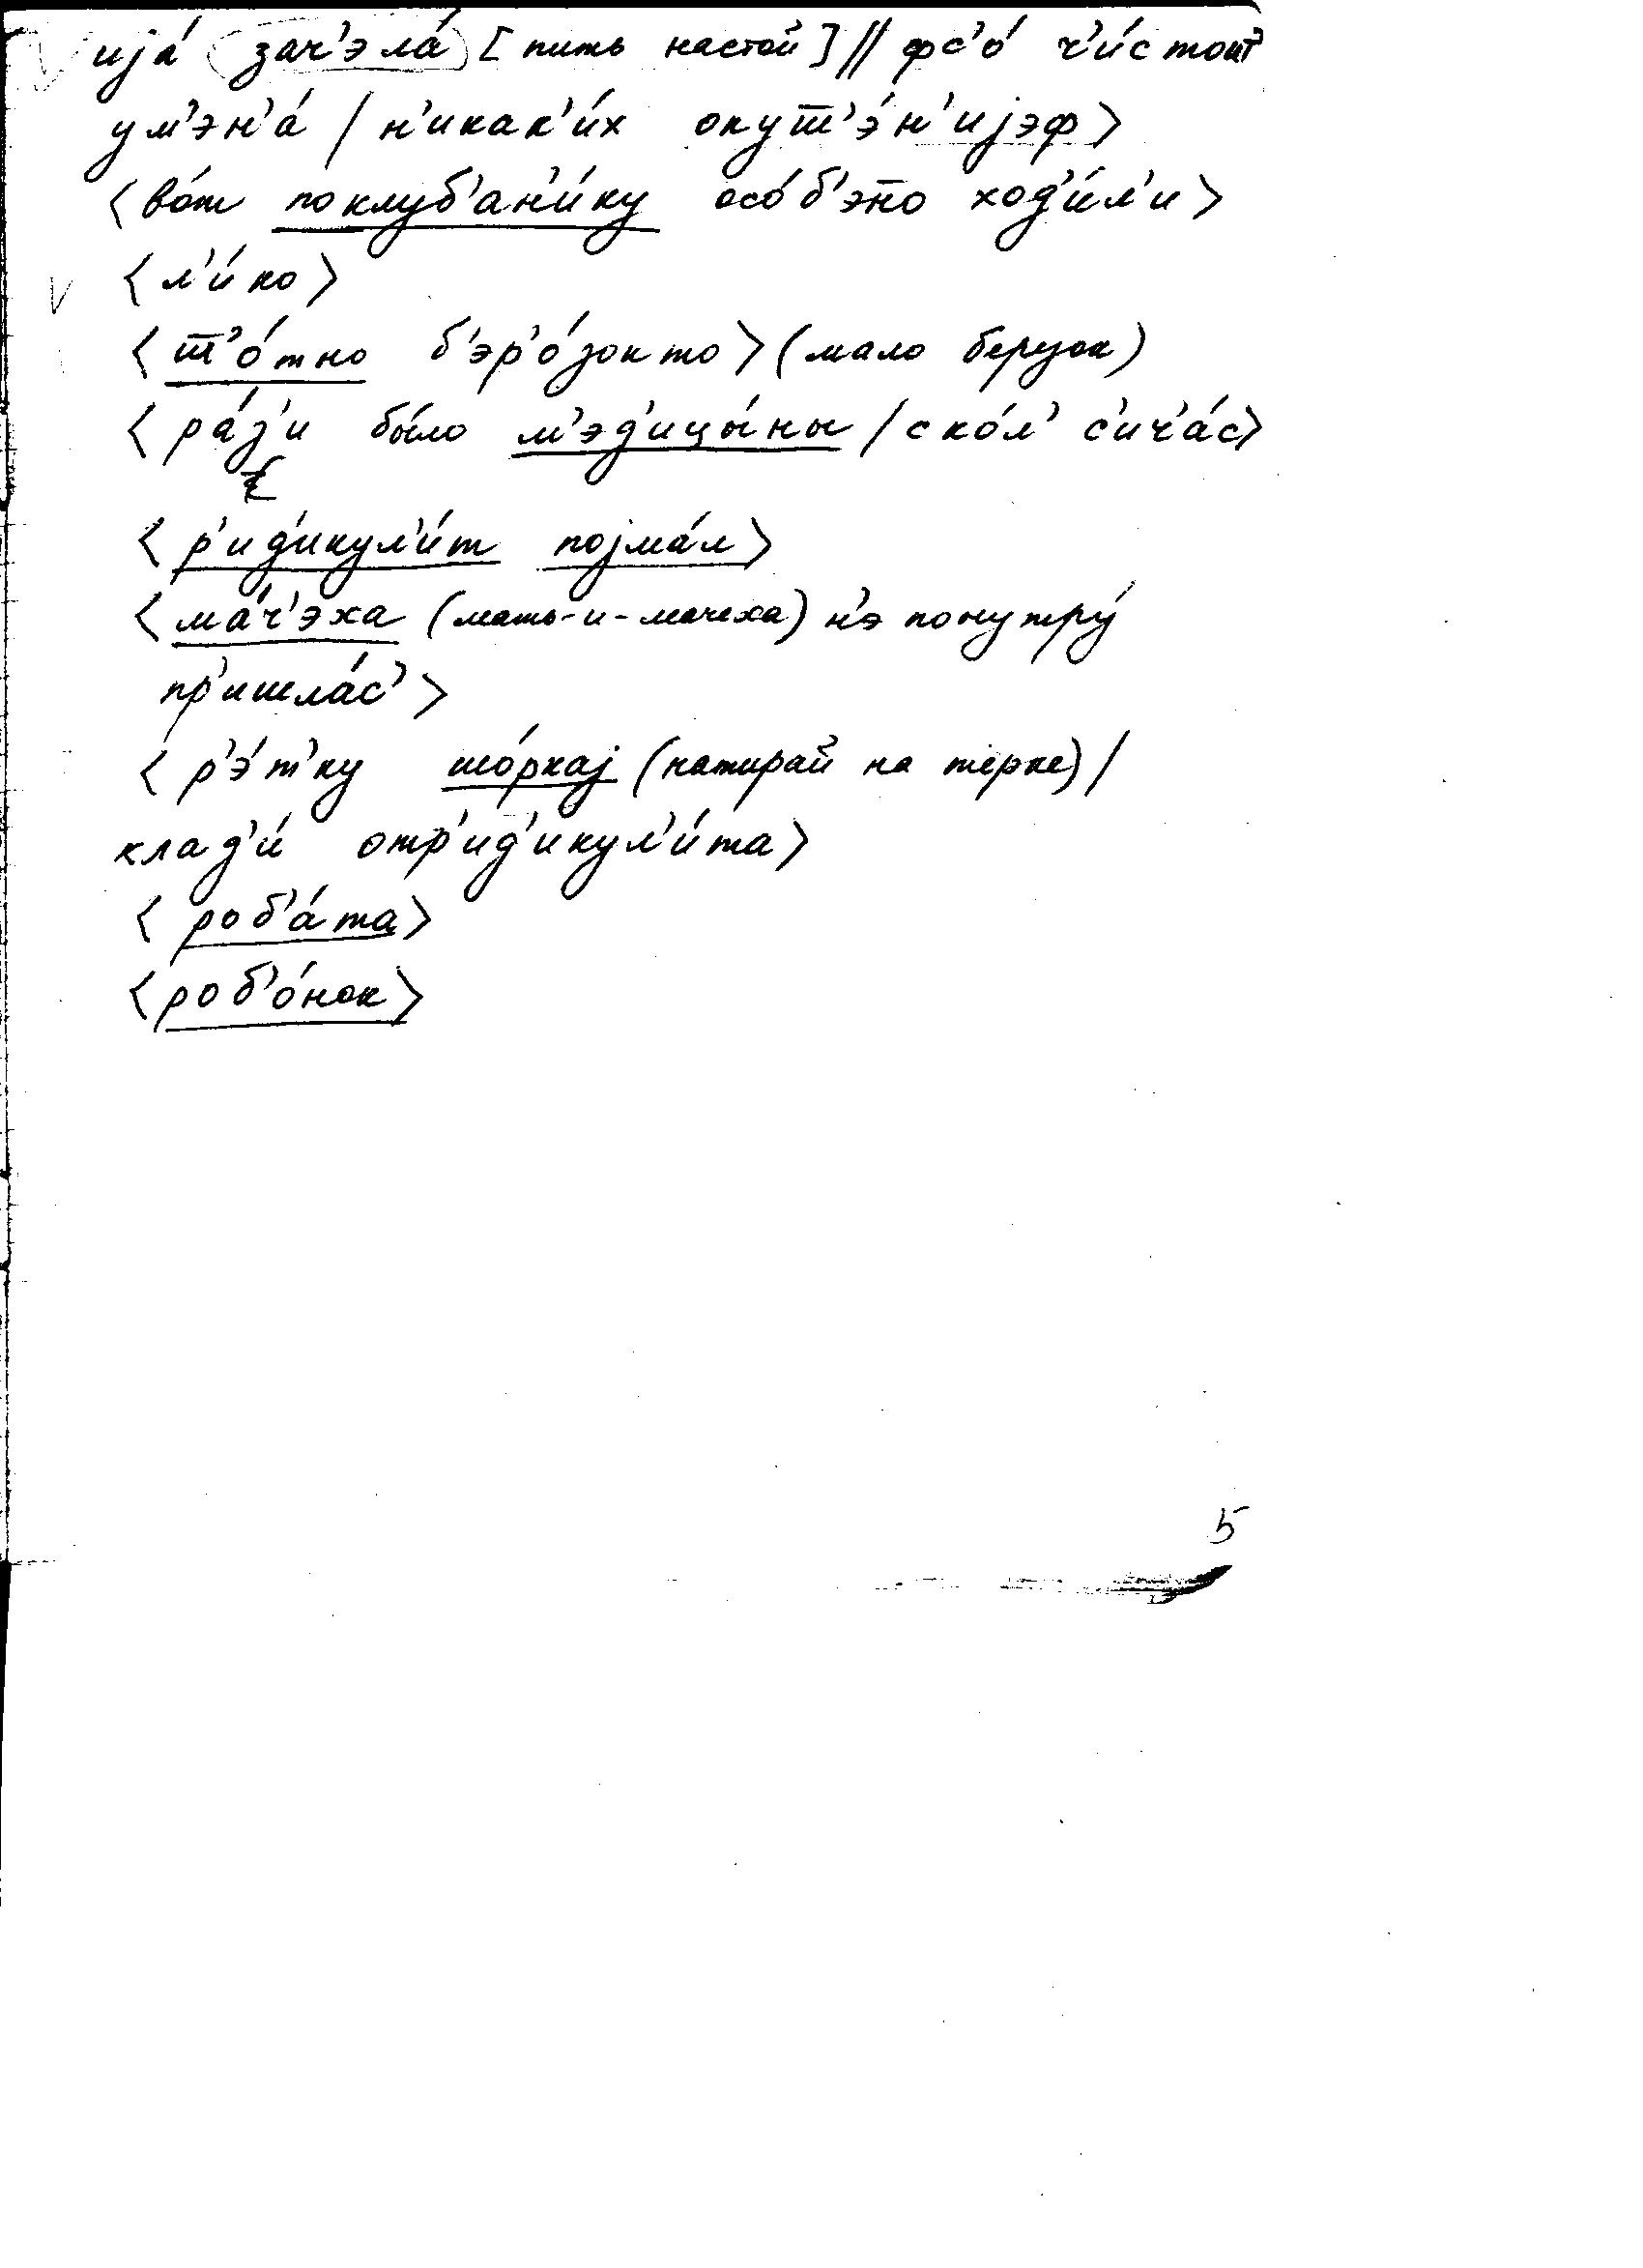 иjа́ зач'эла́ [пить настой] // фс'о́ ч'и́стоит
ум'эн'а́ / н'икак'и́х окут̅'э́н'иjэф>
<во́т поклуб'ан'и́ку осо́б'эн̅о ход'и́л'и>
<л'и́ко>
<т̅'о́тно б'эр'о́зокто> (мало березок)
<ра́з'и бы́ло м'эд'ицы́ны / ско́л' с'ич'а́с>
<р'ид'икул'и́т поjма́л>
<ма́ч'эха (мать-и-мачеха) н'э понутру́
пр'ишла́с'>
<р'э́т'ку шо́ркаj (натирай на тёрке) /
клад'и́ отр'ид'икул'и́та>
<роб'а́та>
<роб'о́нок>
5